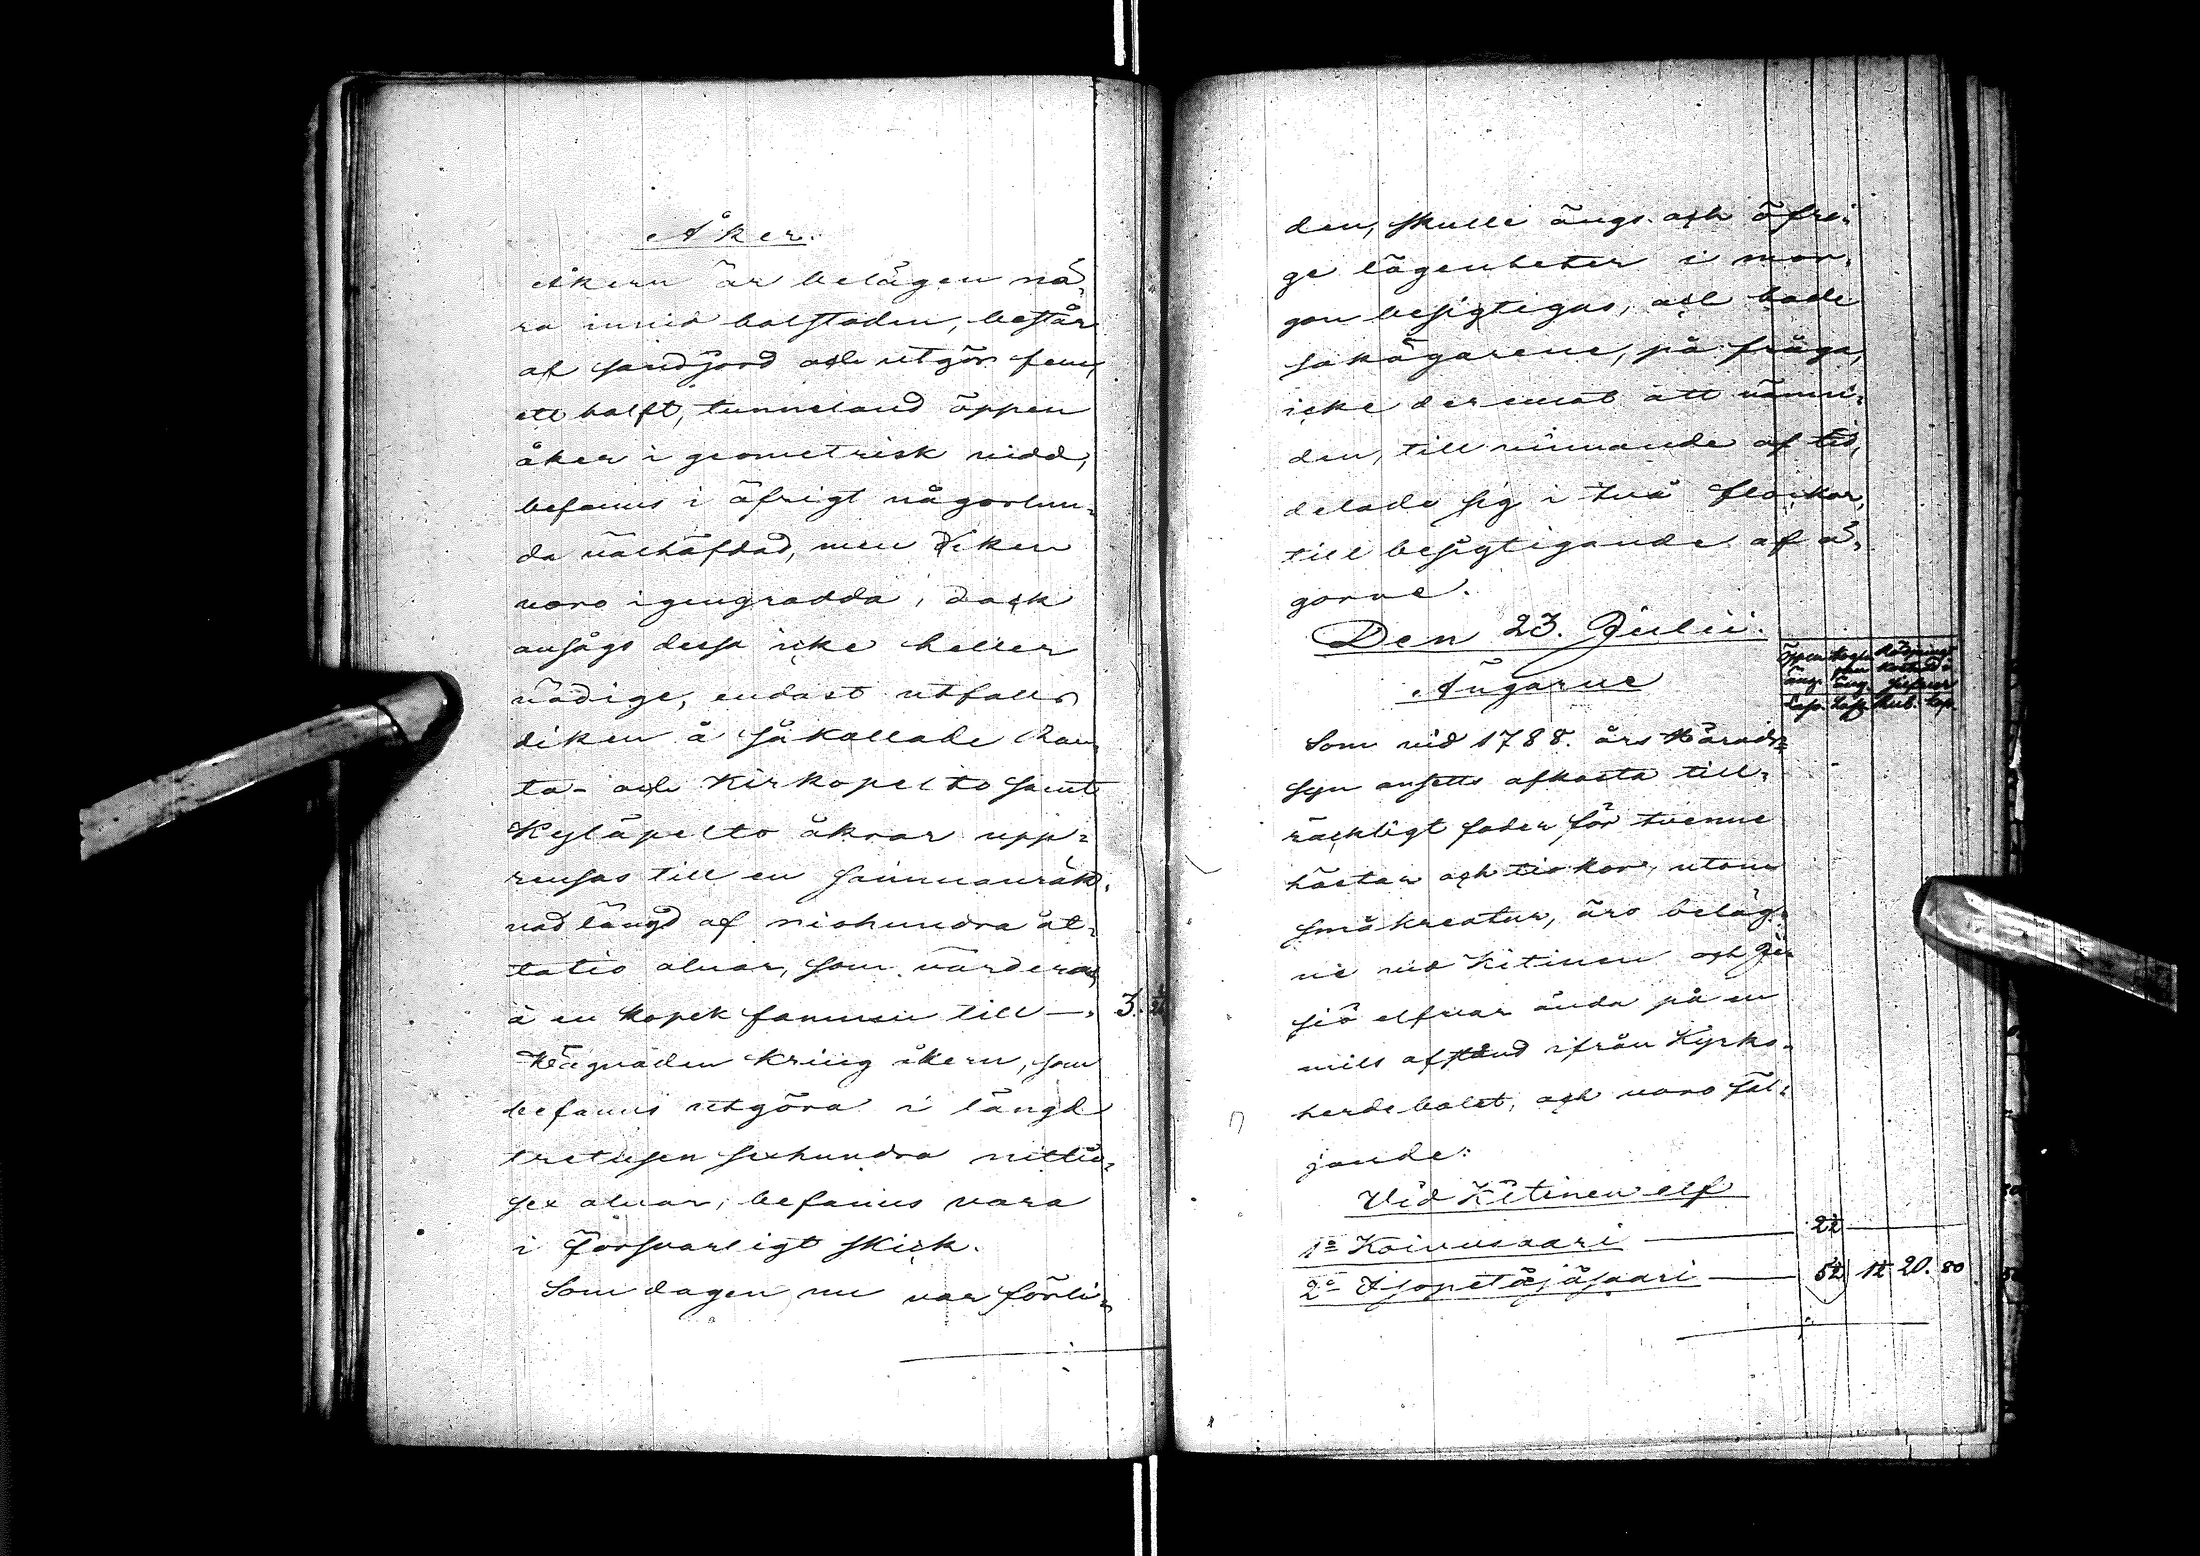 Åker.
Åkern är belägen nä,
ra invid bolstaden, består
af sandjord och utgör fem,
ett halft, tunneland öppen
åker i geometrisk vidd,
befanns i öfrigt någorlun=
da välhäfdad, men diken
voro igengrodda, dock
ansågs dessa icke heller
nödige, endast utfalls
diken å så kallade Ran,
ta- och Kirkopelto samt
Kyläpelto åkrar upp=
rensas till en sammanräk,
nad längd af niohundra åt=
tatio alnar, som värderas
à en kopek famnen till —. 3.
Hägnaden kring åkern, som
befanns utgöra i längd
tretusen sexhundra nittio=
sex alnar, befanns vara
i försvarligt skick.
Som dagen nu var förli=
den, skulle ängs och öfri=
ge lägenheter i mor,
gon besigtigas, och både
sakägarene, på fråga,
icke deremot att nämn=
den, till vinnande af tid,
delade sig i två flockar,
till besigtigande af ä,
gorne.
Den 23. Julii.
Ängarne
Öppen äng.
äng.
Kapp. Kapp. Rub. Kop.
Som vid 1788. års Härads=
syn ansetts afkasta till=
räckligt foder för tvenne
hästar och tio kor, utom
småkreatur, äro beläg=
ne vid Kitinen och Je=
siö elfvar ända på en
mils afstånd ifrån Kyrko=
herdebolet, och voro föl=
jande:
Vid Kitinen elf
1o Koivusaari — 22 —
2o Isopetäjäsaari — 52 12 20. 80